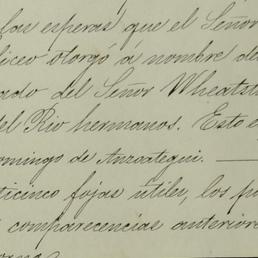 las esperas que el Señor
liceo otorgó á nombre de
ado del Señor Wheatst
el Rio hermanos. Esto e
omingo de Anzoategui. —
ticinco fojas utiles, los
comparecencias anteriore